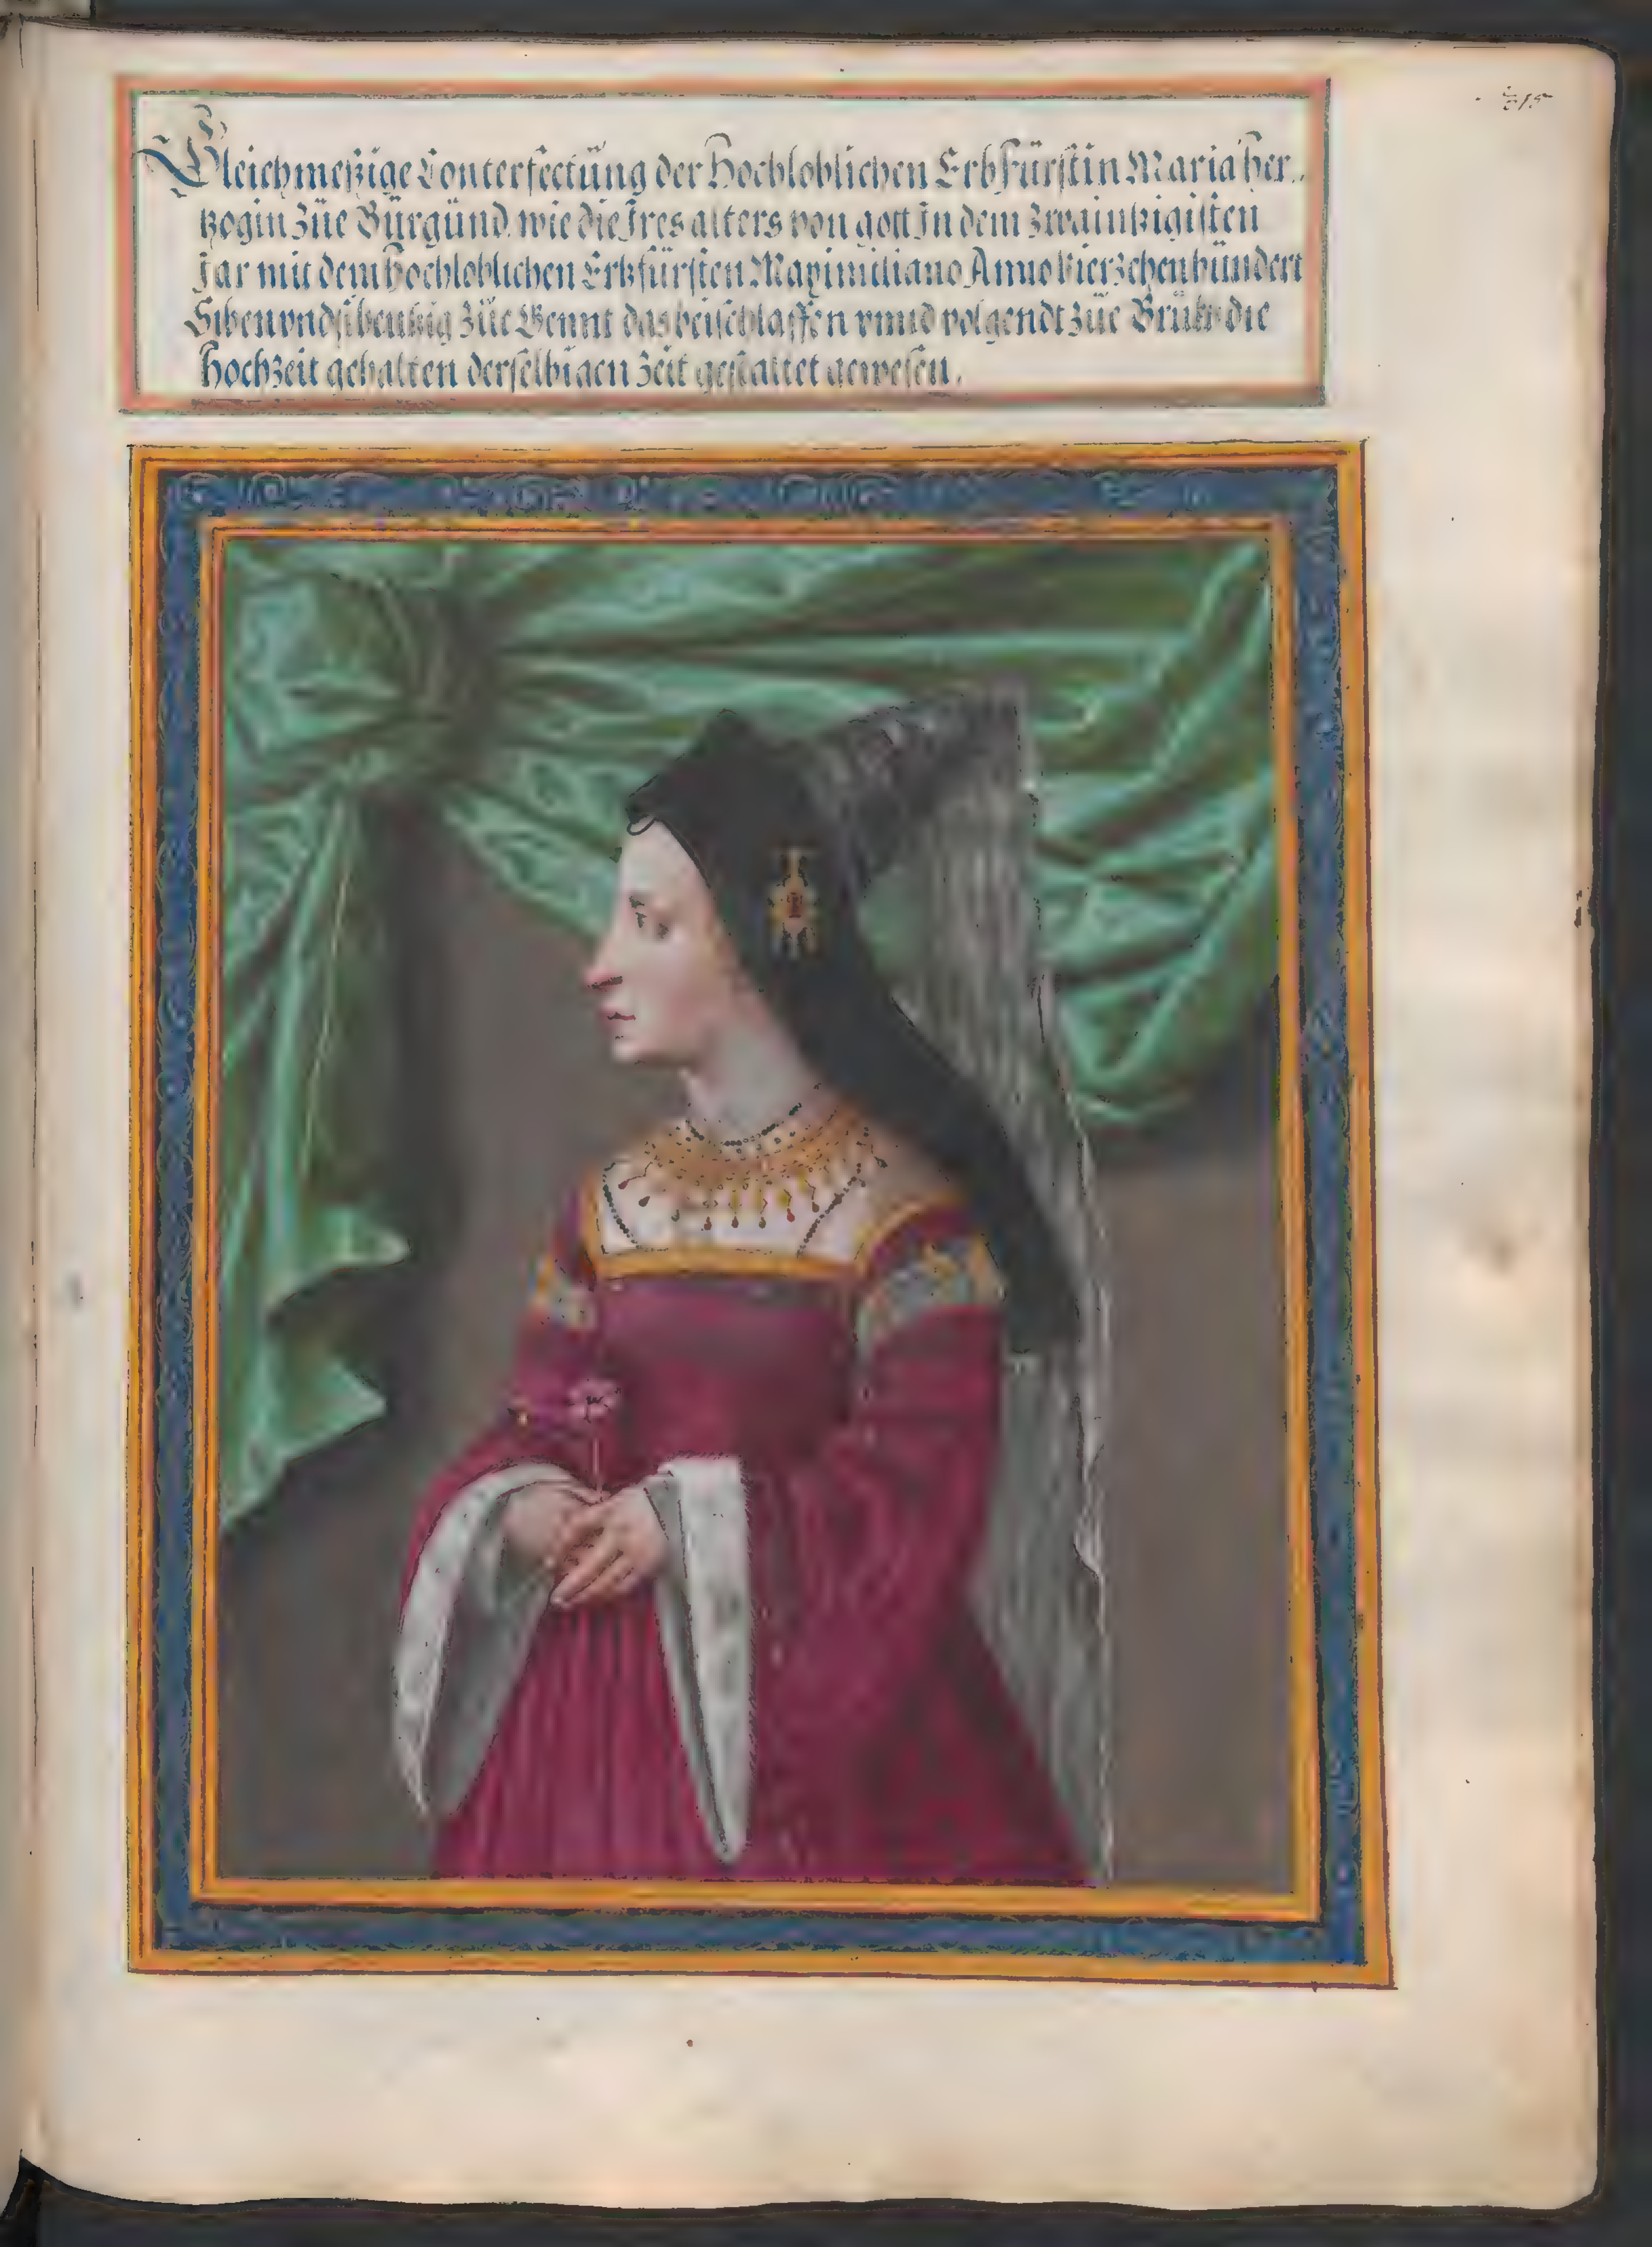 Gleichmeßige Conterfectüng der Hochloblichen Erbfürstin Maria her„
tzogin züe Bürgünd, wie die Jres alters von gott Jn dem zwaintzigisten
Jar mit dem Hochloblichen Erbfürsten Maximiliano Anno Vierzehenhündert
Siben vnd sibentzig züe Gennt das beischlaffen vnnd volgendt züe Brück die
Hochzeit gehalten derselbigen zeit gestaltet gewesen.